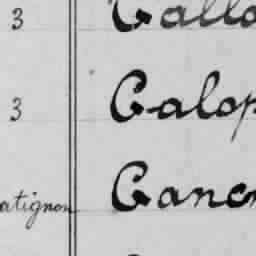 3 Gallo
3 Galop
atignon Gancr